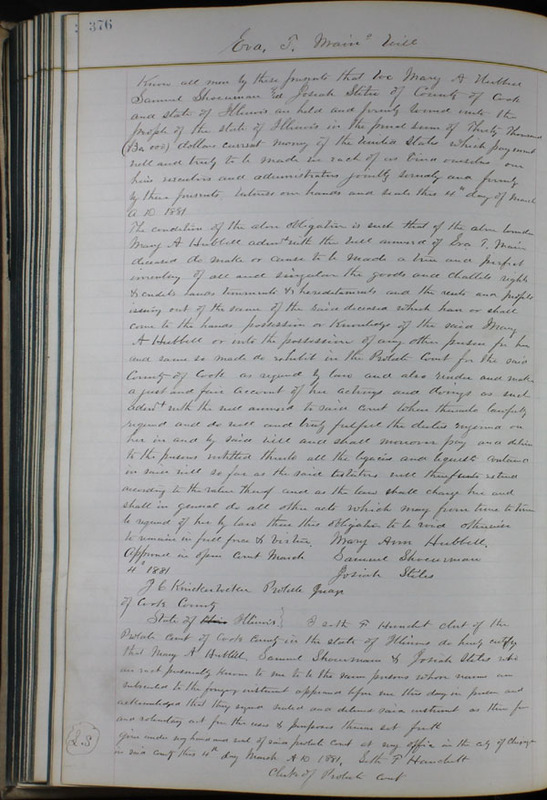 376
Eva. T. Main's Will
Know all men by these presents that We Mary A Hubbell
Samuel Shoeurman and Josiah Stiles of County of Cook
and state of Illinois are held and firmly bound unto the
people of the state of Illinois in the penal sum of Thirty Thousand
(30,000) dollars current money of the United States which payment
well and truly to be made in each of us bind ourselves our
heirs executors and administrators jointly severally and firmly
by these presents, witness our hands and seals this 4th day of March
A D. 1881
The condition of the above obligation is such that if the above bounden
Mary A Hubbell admr with the will annexed of Eva T. Main
deceased do make or cause to be made a true and perfect
inventory of all and singular the goods and chattels rights
& credits lands tenements & hereditaments and the rents and profits
issuing out of the same of the said deceased which have or shall
come to the hands possession or knowledge of the said Mary
A Hubbell or into the possession of any other person for her
and same so made do exhibit in the Probate Court for the said
County of Cook as required by law and also render and make
a just and fair account of her actings and doings as such
admr with the will annexed to said court when thereunto lawfully
required and do well and truly perform the duties required on
her in and by said will and shall moreover pay and deliver
to the persons entitled thereto all the legacies and bequests contained
in said will so far as the said testators will thereunto extend
according to the value thereof and as the law shall charge her and
shall in general do all other acts which may from time to time
be required of her by law then this obligation to be void otherwise
to remain in full force & virtue. Mary Ann Hubbell.
Approved in open Court March Samuel Shoeurman
4th 1881 Josiah Stiles
J C Knickerbocker Probate Judge
of Cook County
State of Illinois } I Seth F Hanchett clerk of the
Probate court of Cook County in the state of Illinois do hereby certify
that Mary A Hubbell, Samuel Shoeurman & Josiah Stiles who
are each personally known to me to be the same persons whose names are
subscribed to the foregoing instrument appeared before me this day in person and
acknowledged that they signed sealed and delivered said instrument as their free
and voluntary act for the uses & purposes therein set forth
L.S Given under my hand and seal of said probate court at my office in the city of Chicago
in said county this 4th day March A D. 1881, Seth F Hanchett
Clerk of Probate Court